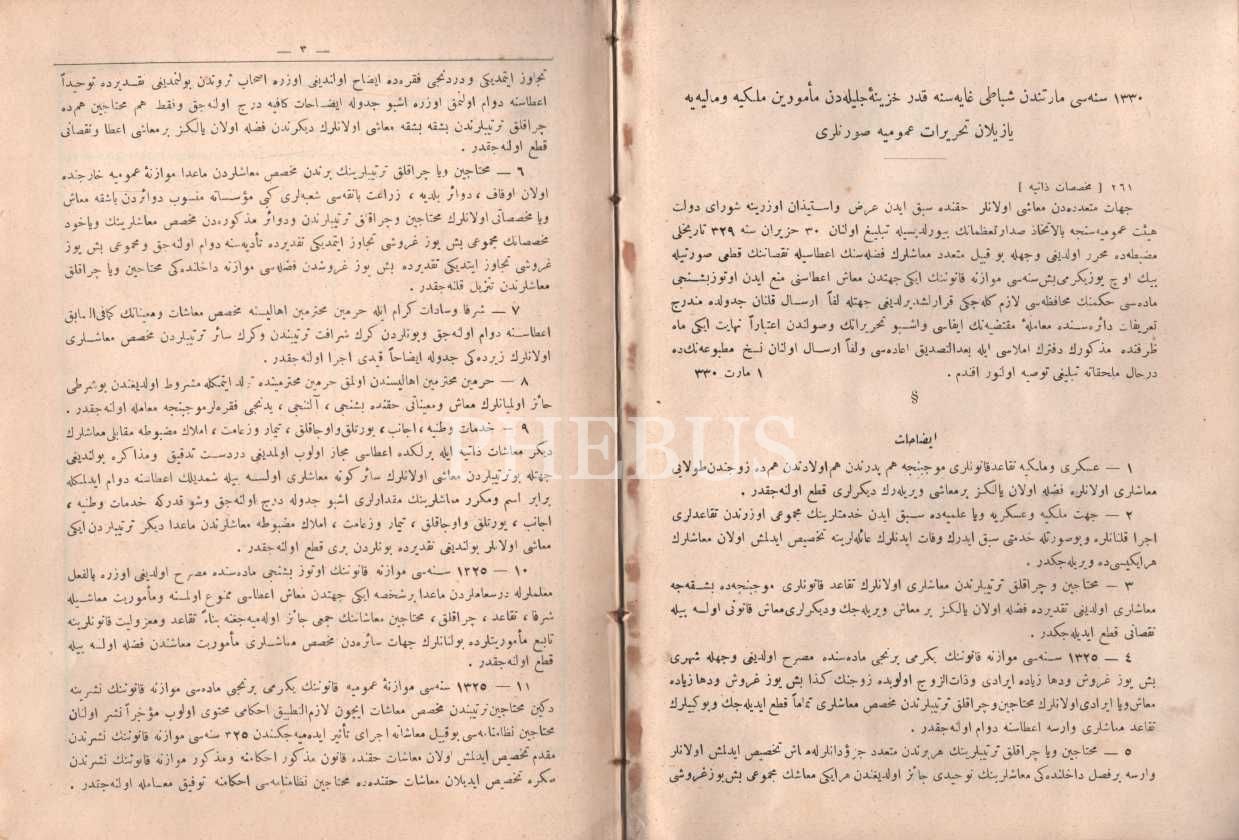 ١٣٣٠ سنه‌سی مارتندن شباطی غایه‌سنه قدر خزینهٔ جلیله‌دن مأمورین ملكیه ومالیه‌یه
یازیلان تحریرات عمومیه صورتلری
٢٦١ [ مخصصات ذاتیه ]
جهات متعدده‌دن معاشی اولانلر حقنده سبق ایدن عرض واستیذان اوزرینه شورای دولت
هیئت عمومیه‌سنجه بالاتخاذ صدارتعظمانك بیورلدیسیله تبلیغ اولنان ٣٠ حزیران سنه ٣٢٩ تاریخلی
مضبطه‌ده محرر اولدیغی وجهله بو قبیل متعدد معاشلرك فضله‌سنك اعطاسیله نقصاننك قطعی صورتیله
بیك اوچ یوزیكرمی‌بش‌سنه‌سی موازنه قانوننك ایكی جهتدن معاش اعطاسنی منع ایدن اوتوزبشنجی
ماده‌سی حكمنك محافظه‌سی لازم كله‌جكی قرارلشدیرلدیغی جهتله لفاً ارسال قلنان جدولده مندرج
تعریفات دائره‌سنده معاملهٔ مقتضیه‌نك ایفاسی واشبو تحریراتك وصولندن اعتباراً نهایت ایكی ماه
ظرفنده مذكورك دفترك املاسی ایله بعدالتصدیق اعاده‌سی ولفاً ارسال اولنان نسخ مطبوعه‌نك‌ده
درحال ملحقاته تبلیغی توصیه اولنور افندم . ١ مارت ٣٣٠
§
ایضاحات
١ — عسكری وملكیه تقاعدقانونلری موجبنجه هم پدرندن هم‌اولادندن هم‌ده زوجندن‌طولایی
معاشلری اولانلره فضله اولان یالكز برمعاشی ویریله‌رك دیكرلری قطع اولنه‌جقدر .
٢ — جهت ملكیه وعسكریه ویا علمیه‌ده سبق ایدن خدمتلرینك مجموعی اوزرندن تقاعدلری
اجرا قلنانلره وبوصورتله خدمتی سبق ایدرك وفات ایدنلرك عائله‌لرینه تخصیص ایدلمش اولان معاشلرك
هرایكیسی‌ده ویریله‌جكدر .
٣ — محتاجین و چراقلق ترتیبلرندن معاشلری اولانلرك تقاعد قانونلری موجبنجه‌ده بشقه‌جه
معاشلری اولدیغی تقدیرده فضله اولان یالكز بر معاش ویریله‌جك ودیكرلری‌معاش قانونی اولسه بیله
نقصانی قطع ایدیله‌جكدر .
٤ — ١٣٢٥ سنه‌سی موازنه قانوننك یكرمی برنجی ماده‌سنده مصرح اولدیغی وجهله شهری
بش یوز غروش ودها زیاده ایرادی وذات‌الزوج اولوبده زوجنك كذا بش یوز غروش ودها زیاده
معاش‌ویا ایرادی‌اولانلرك محتاجین‌وچراقلق ترتیبلرندن مخصص معاشلری تماماً قطع ایدیله‌جك وبوكبیلرك
تقاعد معاشلری وارسه اعطاسنه دوام اولنه‌جقدر .
٥ — محتاجین ویا چراقلق ترتیبلرینك هربرندن متعدد جزؤدانلرله‌معاش تخصیص ایدلمش اولانلر
وارسه برفصل داخلنده‌كی معاشلرینك توحیدی جائز اولدیغندن هرایكی معاشك مجموعی بش‌یوزغروشی
— ٣ —
تجاوز ایتمدیكی ودردنجی فقره‌ده ایضاح اولندیغی اوزره اصحاب ثروتدن بولنمدیغی تقدیرده توحیداً
اعطاسنه دوام اولنمق اوزره اشبو جدوله ایضاحات كافیه درج اولنه‌جق وفقط هم محتاجین هم‌ده
چراقلق ترتیبلرندن بشقه بشقه معاشی اولانلرك دیكرندن فضله اولان یالكز برمعاشی اعطا ونقصانی
قطع اولنه‌جقدر .
٦ — محتاجین ویا چراقلق ترتیبلرینك برندن مخصص معاشلردن ماعدا موازنهٔ عمومیه خارجنده
اولان اوقاف ، دوائر بلدیه ، زراعت بانقه‌سی شعبه‌لری كبی مؤسساته منسوب دوائردن باشقه معاش
ویا مخصصاتی اولانلرك محتاجین وچراقلق ترتیبلرندن ودوائر مذكوره‌دن مخصص معاشلرینك ویاخود
مخصصاتك مجموعی بش یوز غروشی تجاوز ایتمدیكی تقدیرده تأدیه‌سنه دوام اولنه‌جق ومجموعی بش یوز
غروشی تجاوز ایتدیكی تقدیرده بش یوز غروشدن فضله‌سی موازنه داخلنده‌كی محتاجین ویا چراقلق
معاشلرندن تنزیل قلنه‌جقدر .
٧ — شرفا وسادات كرام ایله حرمین محترمین اهالیسنه مخصص معاشات ومعیناتك كمافی‌السابق
اعطاسنه دوام اولنه‌جق وبونلردن كرك شرافت ترتیبندن وكرك سائر ترتیبلردن مخصص معاشلری
اولانلرك زیرده‌كی جدوله ایضاحاً قیدی اجرا اولنه‌جقدر .
٨ — حرمین محترمین اهالیسندن اولمق حرمین محترمینده تولد ایتمكله مشروط اولدیغندن بوشرطی
حائز اولمیانلرك معاش ومعیناتی حقنده بشنجی ، آلتنجی ، یدنجی فقره‌لرموجبنجه معامله اولنه‌جقدر .
٩ — خدمات وطنیه ، اجانب ، یورتلق‌واوجاقلق ، تیمار وزعامت ، املاك مضبوطه مقابلی‌معاشلرك
دیكر معاشات ذاتیه ایله برلكده اعطاسی مجاز اولوب اولمدیغی دردست تدقیق ومذاكره بولندیغی
جهتله بوترتیبلردن معاشی اولانلرك سائر كونه معاشلری اولسنه بیله شمدیلك اعطاسنه دوام ایدلمكله
برابر اسم ومكرر معاشلرینك مقدارلری اشبو جدوله درج اولنه‌جق وشو قدركه خدمات وطنیه ،
اجانب ، یورتلق واوجاقلق ، تیمار وزعامت ، املاك مضبوطه معاشلرندن ماعدا دیكر ترتیبلردن ایكی
معاشی اولانلر بولندیغی تقدیرده بونلردن بری قطع اولنه‌جقدر .
١٠ — ١٣٢٥ سنه‌سی موازنه قانوننك اوتوز بشنجی ماده‌سنده مصرح اولدیغی اوزره بالفعل
معلملرله درسعاملردن ماعدا برشخصه ایكی جهتدن معاش اعطاسی ممنوع اولمسنه ومأموریت معاشیله
شرفا ، تقاعد ، چراقلق ، محتاجین معاشاتنك جمعی جائز اوله‌میه‌جغنه بناءً تقاعد ومعزولیت قانونلرینه
تابع مأموریتلرده بولنانلرك جهات سائره‌دن مخصص معاشلری مأموریت معاشندن فضله اولسه بیله
قطع اولنه‌جقدر .
١١ — ١٣٢٥ سنه‌سی موازنهٔ عمومیه قانوننك یكرمی برنجی ماده‌سی موازنه قانوننك نشرینه
دكین محتاجین‌ترتیبندن مخصص معاشات ایچون لازم‌التطبیق احكامی محتوی اولوب مؤخراً نشر اولنان
محتاجین نظامنامه‌سی بوقبیل معاشاته اجرای تأثیر ایده‌میه‌جكندن ٣٢٥ سنه‌سی موازنه قانوننك نشرندن
مقدم تخصیص ایدلمش اولان معاشات حقنده قانون مذكور احكامنه ومذكور موازنه قانوننك نشرندن
صكره تخصیص ایدیلان معاشات حقنده‌ده محتاجین نظامنامه‌سی احكامنه توفیق معامله اولنه‌جقدر .
PHEBUS